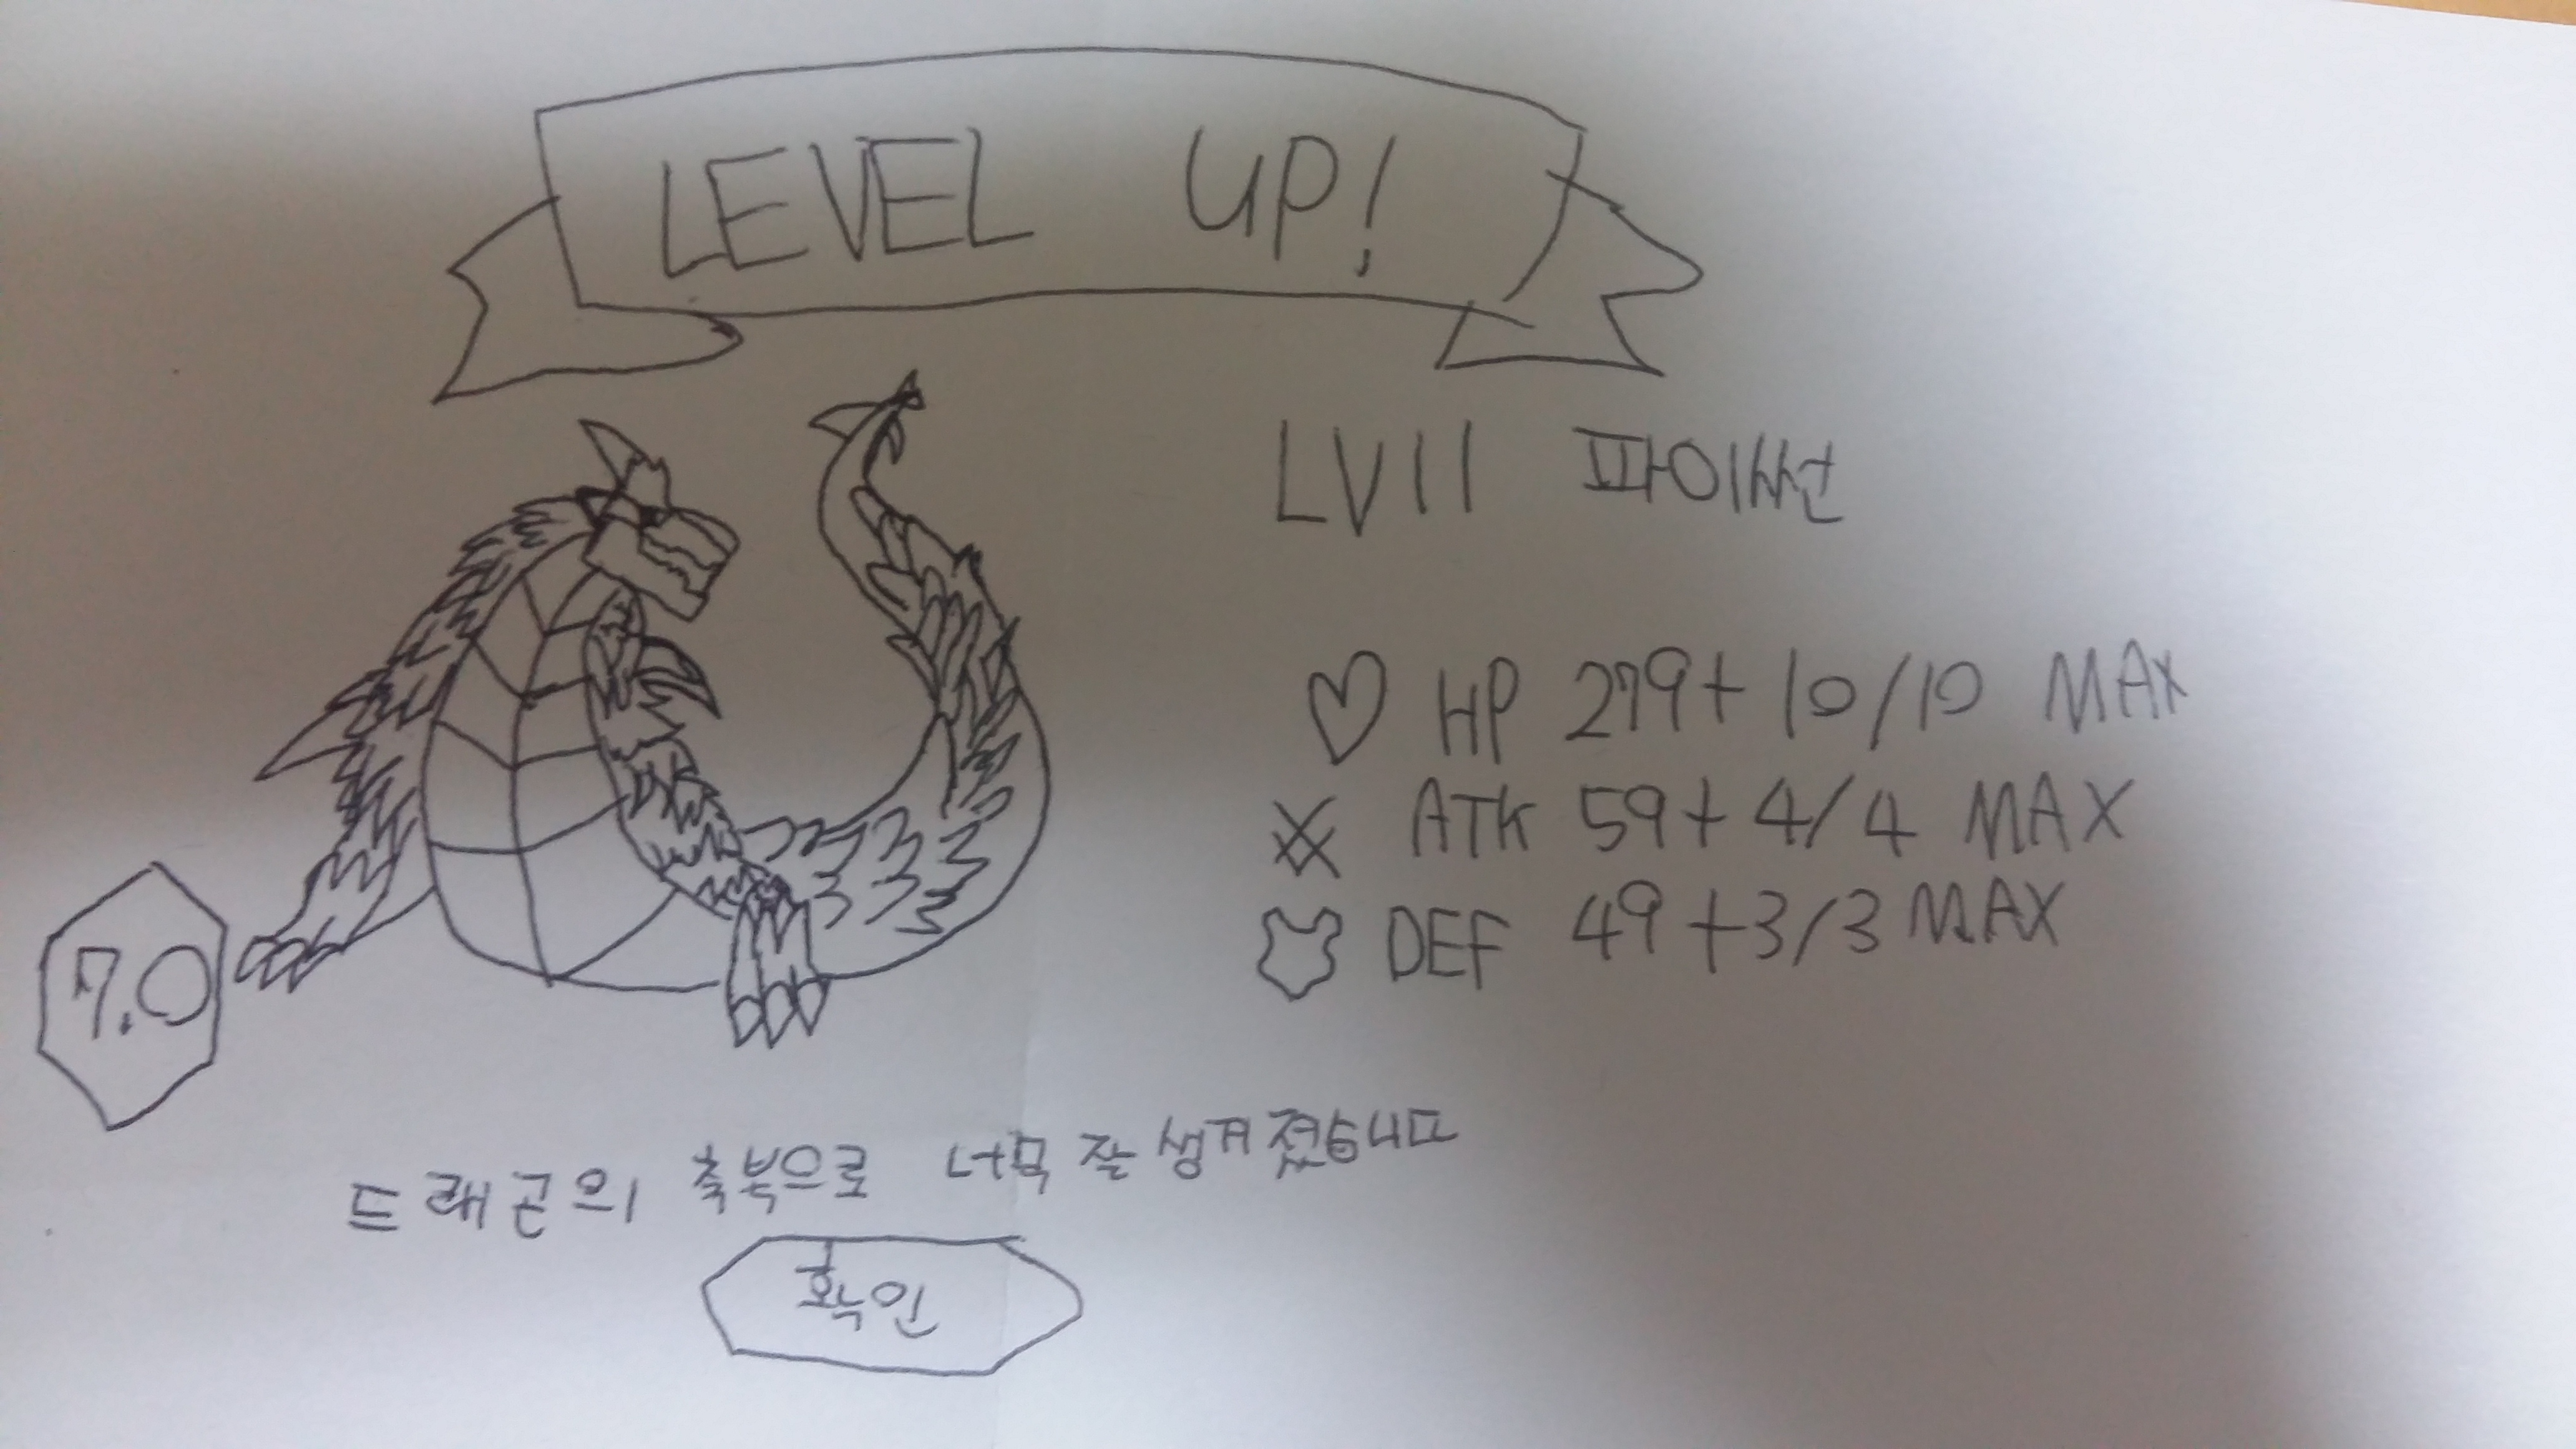 LEVEL UP!
LV11 파이썬
HP 279+ 10/10 MAX
ATK 59+ 4/4 MAX
DEF 49+3/3 MAX
7.0
드래곤의 축복으로 너무 잘생겨졌습니다
확인